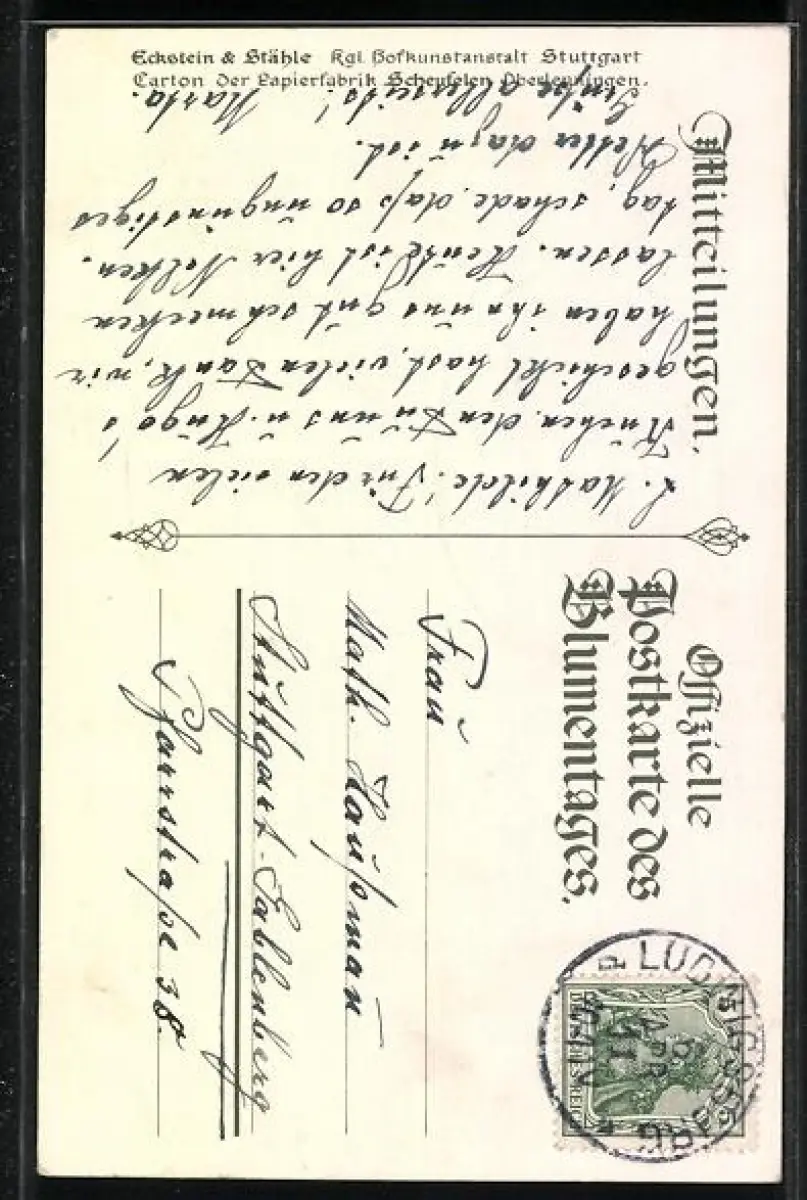 Eckstein & Stähle Kgl. Hofkunstanstalt Stuttgart
Carton der Papierfabrik Scheufelen, Oberlenningen.
Mitteilungen.
L. Mathilde! Für den vielen
Kuchen, den Du uns u. Hugo's
geschickt hast, vielen Dank, wir
haben ihn uns gut schmecken
lassen. Heute ist hier Nelken-
tag, schade, daß so ungünstiges
Wetter dazu ist.
Grüße allerseits! Marta.
Offizielle
Postkarte des
Blumentages.
LUDWIGSBURG
APR
11
DEUTSCHES REICH
Frau
Math. Haußman
Stuttgart-Gablenberg
Pfarrstraße 38.